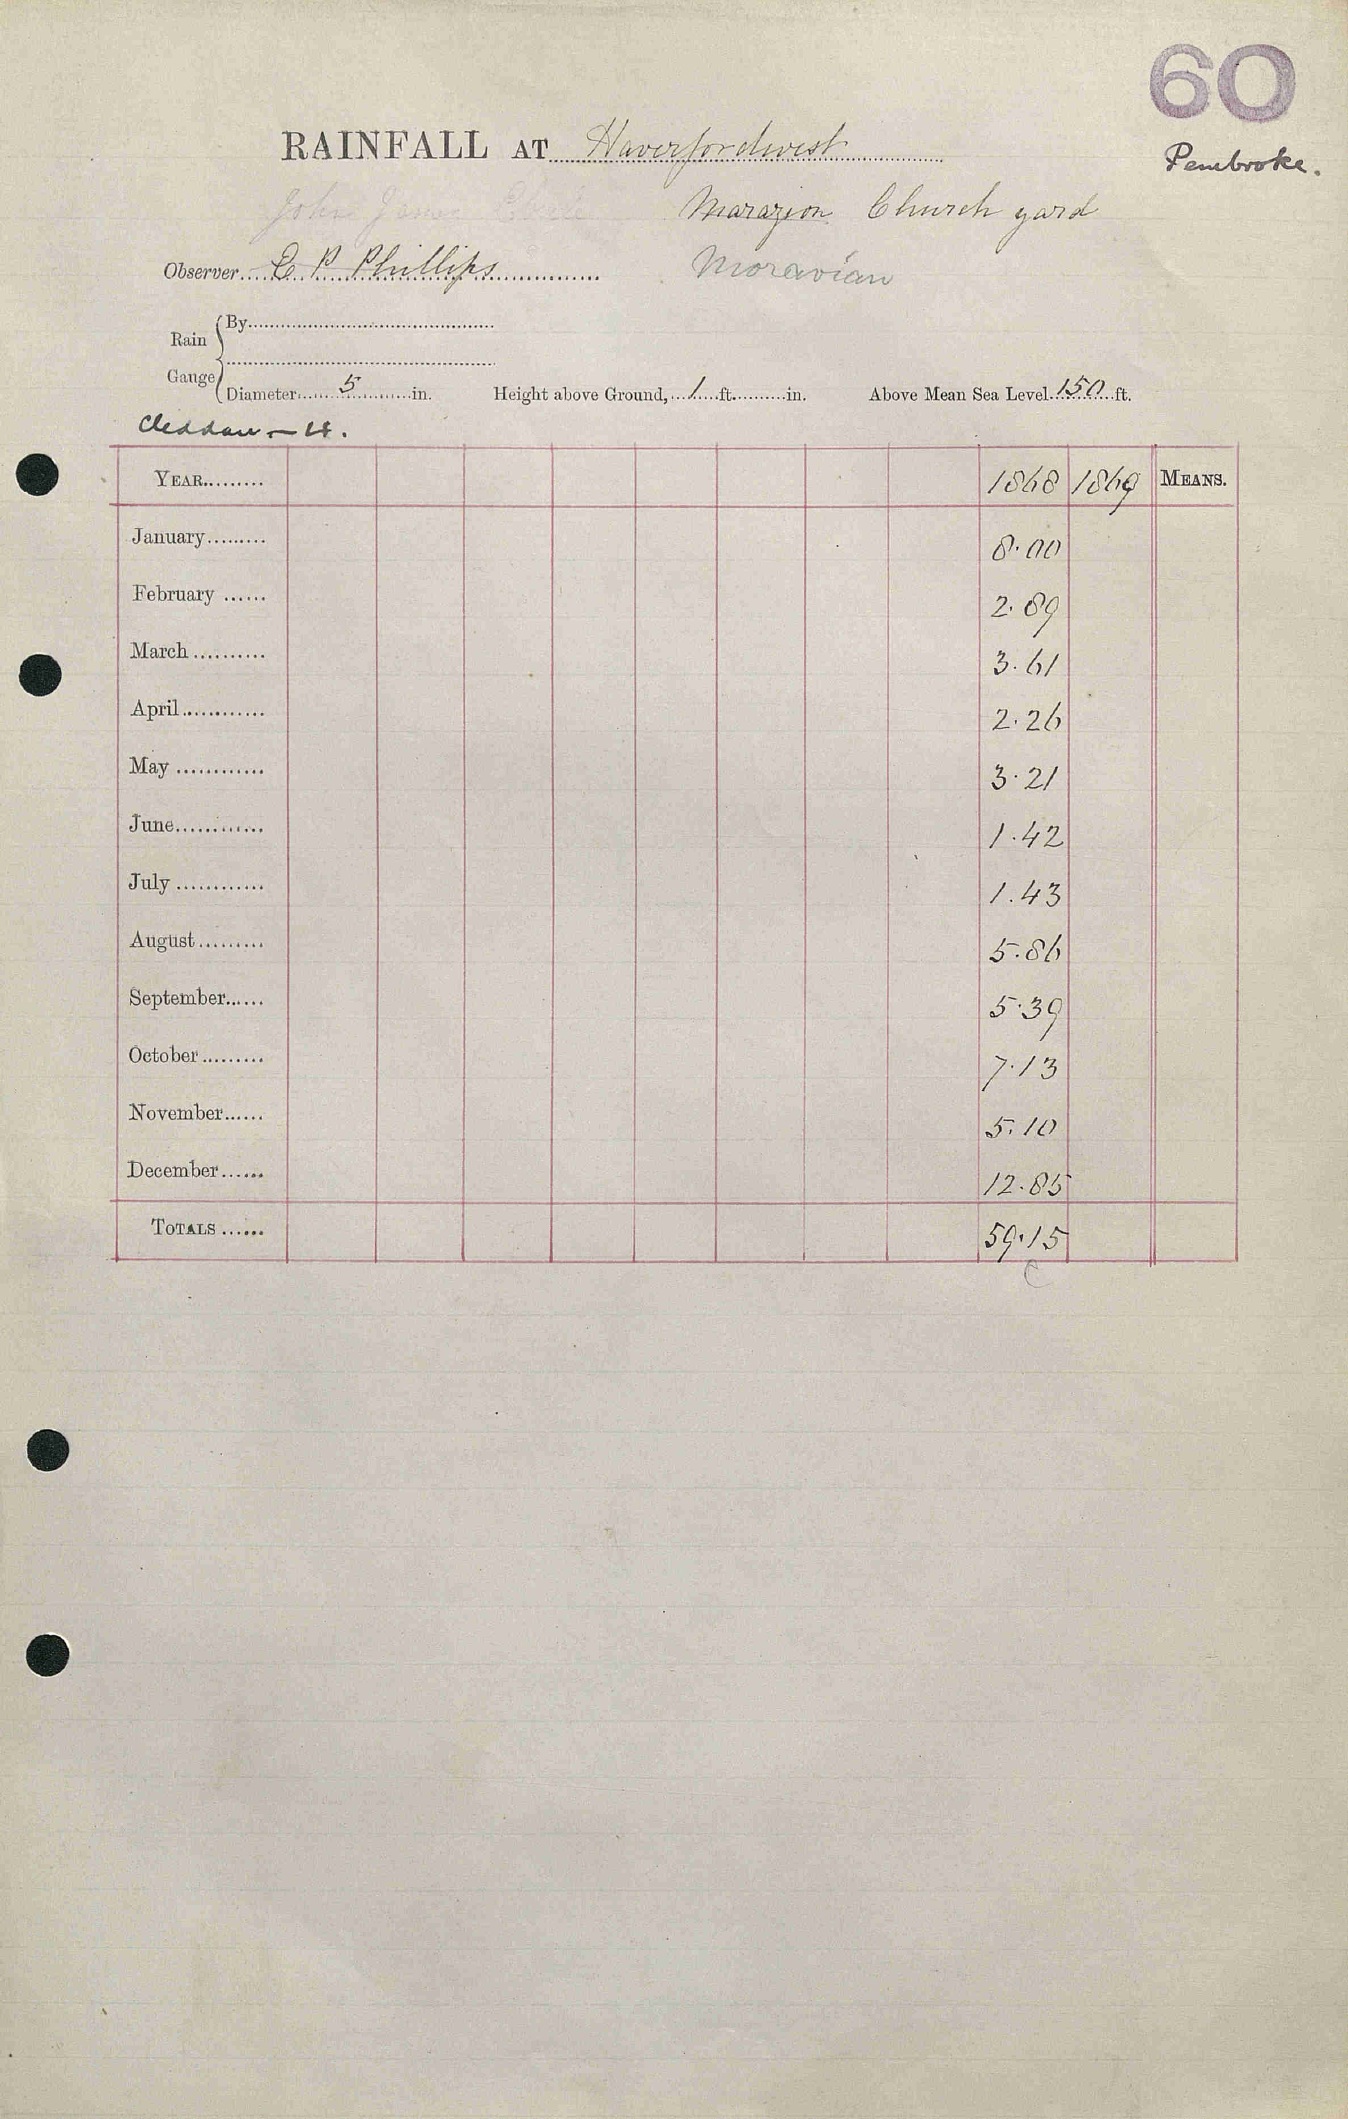 60
RAINFALL AT Haverfordwest
Pembroke.
John James Marazion Church yard
Observer E P Phillips Moravian
Rain Gauge
By
Diameter 5 in. Height above Ground, 1 ft. in. Above Mean Sea Level 150 ft.
Cleddau — 4.
YEAR 1868 1869 MEANS.
January 8.00
February 2.89
March 3.61
April 2.26
May 3.21
June 1.42
July 1.43
August 5.86
September 5.39
October 7.13
November 5.10
December 12.85
TOTALS 59.15
C